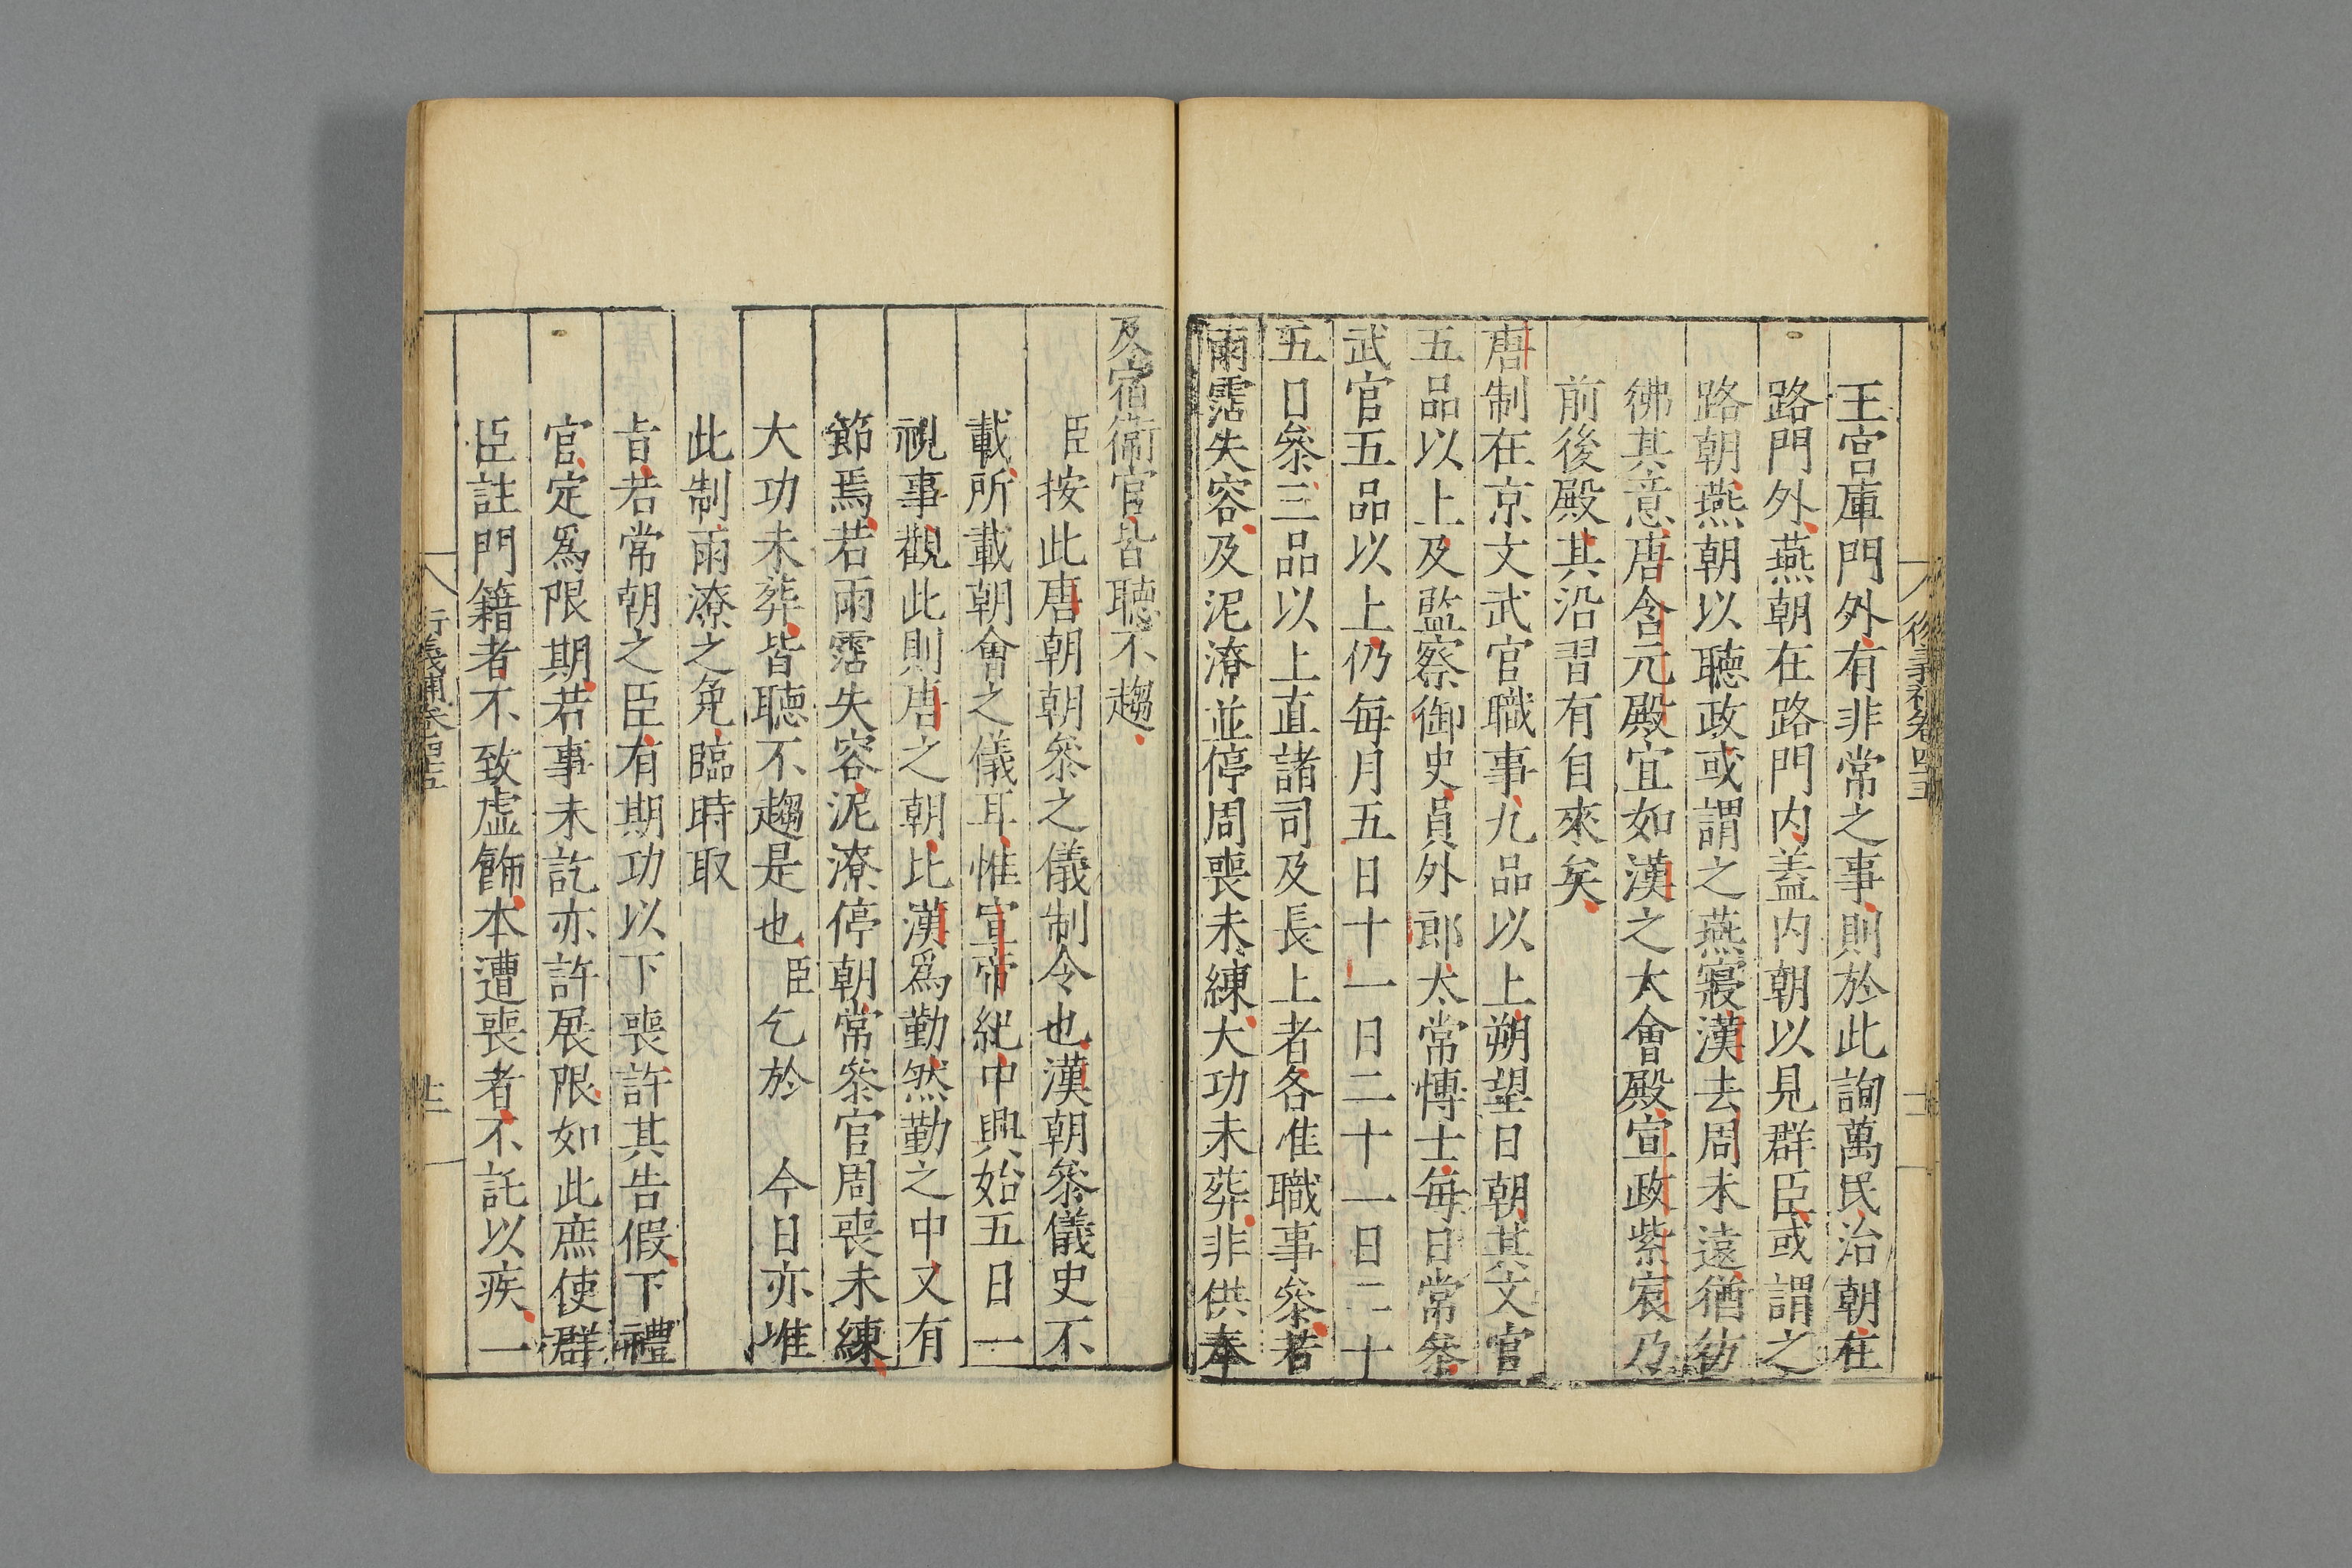 王宮庫門外有非常之事則於此詢萬民治朝在
路門外燕朝在路門内盖内朝以見群臣或謂之
路朝燕朝以聽政或謂之燕寢漢去周未遠猶彷
彿其意唐含元殿宜如漢之大會殿宣政紫宸乃
前後殿其沿習有自來矣
唐制在京文武官職事九品以上朔望日朝其文官
五品以上及監察御史員外郎太常博士每日常叅
武官五品以上仍每月五日十一日二十一日二十
五口叅三品以上直諸司及長上者各准職事叅若
雨霑失容及泥潦並停周喪未練大功未葬非供奉
及宿衛官皆聽不趨
臣按此唐朝朝叅之儀制令也漢朝叅儀史不
載所載朝會之儀耳惟宣帝紀中興始五日一
視事觀此則唐之朝比漢爲勤然勤之中又有
節焉若雨霑失容泥潦停朝常叅官周喪未練
大功未葬皆聽不趨是也臣乞於　今日亦惟
此制雨潦之免臨時取
旨若常朝之臣有期功以下喪許其告假下禮
官定爲限期若事未訖亦許展限如此庶使群
臣註門籍者不致虚飾本遭喪者不託以疾一